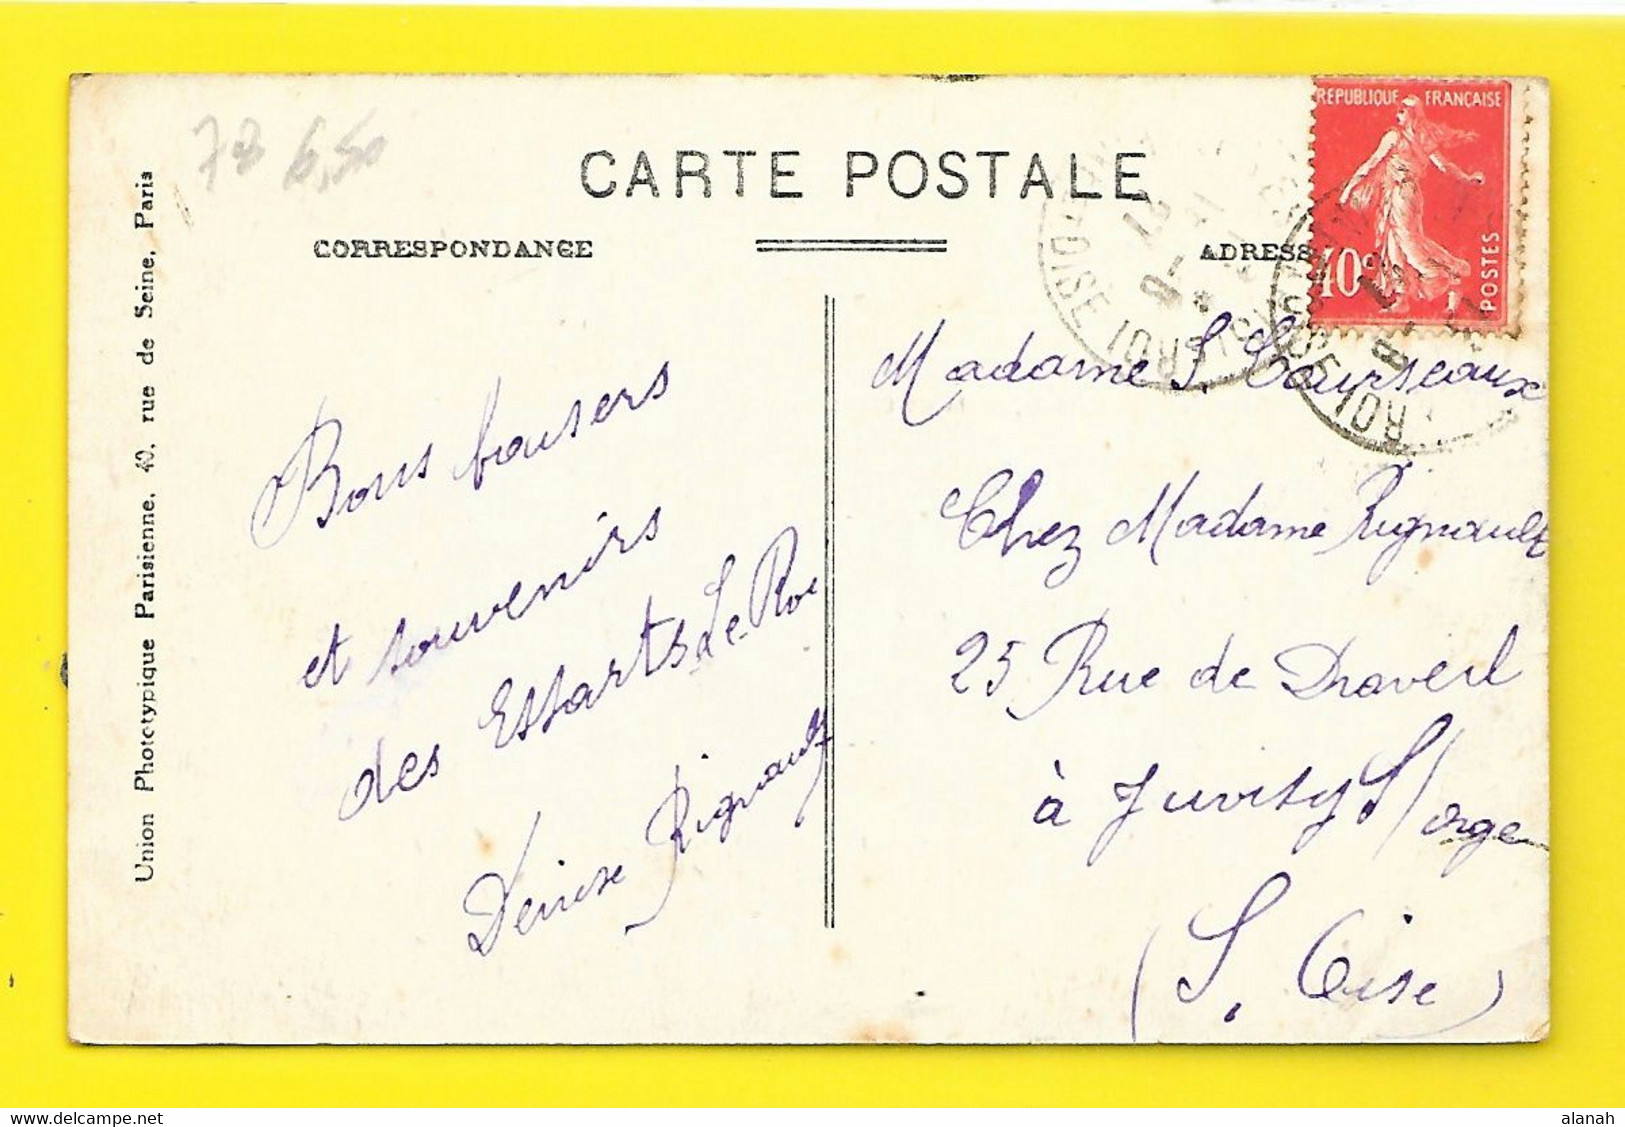 78 6,50
CARTE POSTALE
CORRESPONDANCE
ADRESSE
REPUBLIQUE FRANÇAISE
10c
POSTES
Union Phototypique Parisienne, 40, rue de Seine, Paris
Bons baisers
et souvenirs
des Essarts Le Roi
Denise Rignault
Madame S. Courseaux
Chez Madame Rignault
25 Rue de Draveil
à Juvisy S/ orge
(S. Oise)
alanah